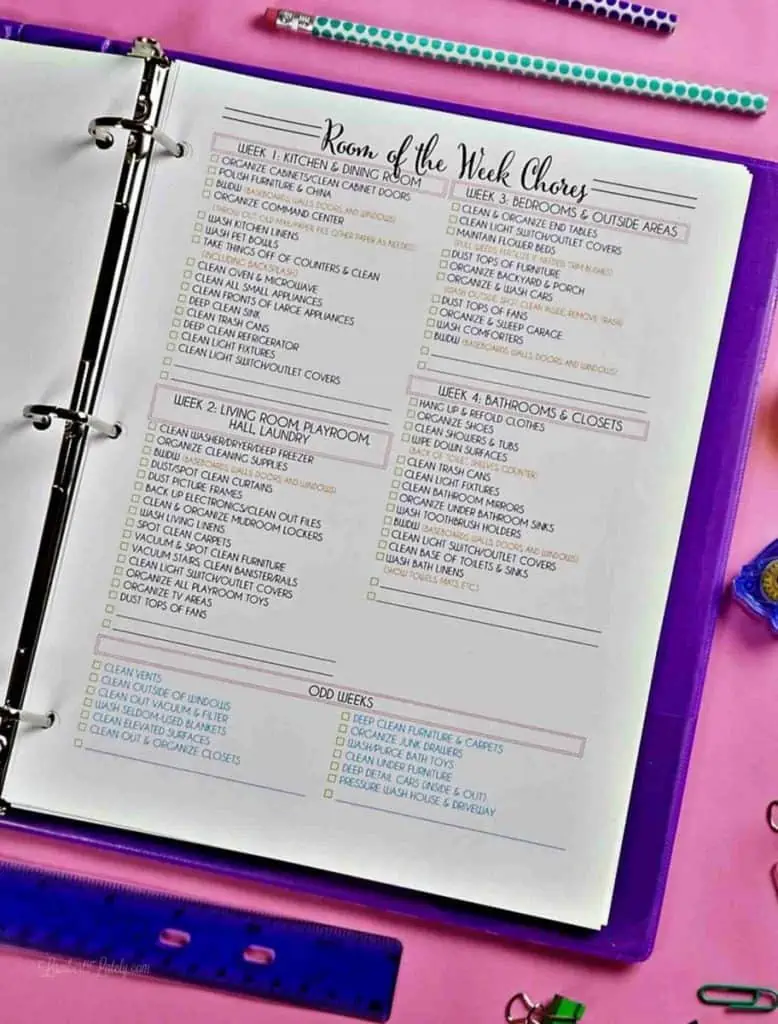 Room of the Week Chores
WEEK 1: KITCHEN & DINING ROOM
ORGANIZE CABINETS/CLEAN CABINET DOORS
POLISH FURNITURE & CHINA
BWDW (BASEBOARDS, WALLS, DOORS, AND WINDOWS)
ORGANIZE COMMAND CENTER
(THROW OUT OLD MAIL/PAPER, FILE OTHER PAPER AS NEEDED)
WASH KITCHEN LINENS
WASH PET BOWLS
TAKE THINGS OFF OF COUNTERS & CLEAN
(INCLUDING BACKSPLASH)
CLEAN OVEN & MICROWAVE
CLEAN ALL SMALL APPLIANCES
CLEAN FRONTS OF LARGE APPLIANCES
DEEP CLEAN SINK
CLEAN TRASH CANS
DEEP CLEAN REFRIGERATOR
CLEAN LIGHT FIXTURES
CLEAN LIGHT SWITCH/OUTLET COVERS
WEEK 2: LIVING ROOM, PLAYROOM,
HALL, LAUNDRY
CLEAN WASHER/DRYER/DEEP FREEZER
ORGANIZE CLEANING SUPPLIES
BWDW (BASEBOARDS, WALLS, DOORS, AND WINDOWS)
DUST/SPOT CLEAN CURTAINS
DUST PICTURE FRAMES
BACK UP ELECTRONICS/CLEAN OUT FILES
CLEAN & ORGANIZE MUDROOM LOCKERS
WASH LIVING LINENS
SPOT CLEAN CARPETS
VACUUM & SPOT CLEAN FURNITURE
VACUUM STAIRS, CLEAN BANISTER/RAILS
CLEAN LIGHT SWITCH/OUTLET COVERS
ORGANIZE ALL PLAYROOM TOYS
ORGANIZE TV AREAS
DUST TOPS OF FANS
WEEK 3: BEDROOMS & OUTSIDE AREAS
CLEAN & ORGANIZE END TABLES
CLEAN LIGHT SWITCH/OUTLET COVERS
MAINTAIN FLOWER BEDS
(PULL WEEDS, FERTILIZE IF NEEDED, TRIM BUSHES)
DUST TOPS OF FURNITURE
ORGANIZE BACKYARD & PORCH
ORGANIZE & WASH CARS
(WASH OUTSIDE, SPOT CLEAN INSIDE, REMOVE TRASH)
DUST TOPS OF FANS
ORGANIZE & SWEEP GARAGE
WASH COMFORTERS
BWDW (BASEBOARDS, WALLS, DOORS, AND WINDOWS)
WEEK 4: BATHROOMS & CLOSETS
HANG UP & REFOLD CLOTHES
ORGANIZE SHOES
CLEAN SHOWERS & TUBS
WIPE DOWN SURFACES
(BACK OF TOILET, SHELVES, COUNTER)
CLEAN TRASH CANS
CLEAN LIGHT FIXTURES
CLEAN BATHROOM MIRRORS
ORGANIZE UNDER BATHROOM SINKS
WASH TOOTHBRUSH HOLDERS
BWDW (BASEBOARDS, WALLS, DOORS, AND WINDOWS)
CLEAN LIGHT SWITCH/OUTLET COVERS
CLEAN BASE OF TOILETS & SINKS
WASH BATH LINENS
(SHOW TOWELS, MATS, ETC.)
ODD WEEKS
CLEAN VENTS
CLEAN OUTSIDE OF WINDOWS
CLEAN OUT VACUUM & FILTER
WASH SELDOM-USED BLANKETS
CLEAN ELEVATED SURFACES
CLEAN OUT & ORGANIZE CLOSETS
DEEP CLEAN FURNITURE & CARPETS
ORGANIZE JUNK DRAWERS
WASH/PURGE BATH TOYS
CLEAN UNDER FURNITURE
DEEP DETAIL CARS (INSIDE & OUT)
PRESSURE WASH HOUSE & DRIVEWAY
Lately.com